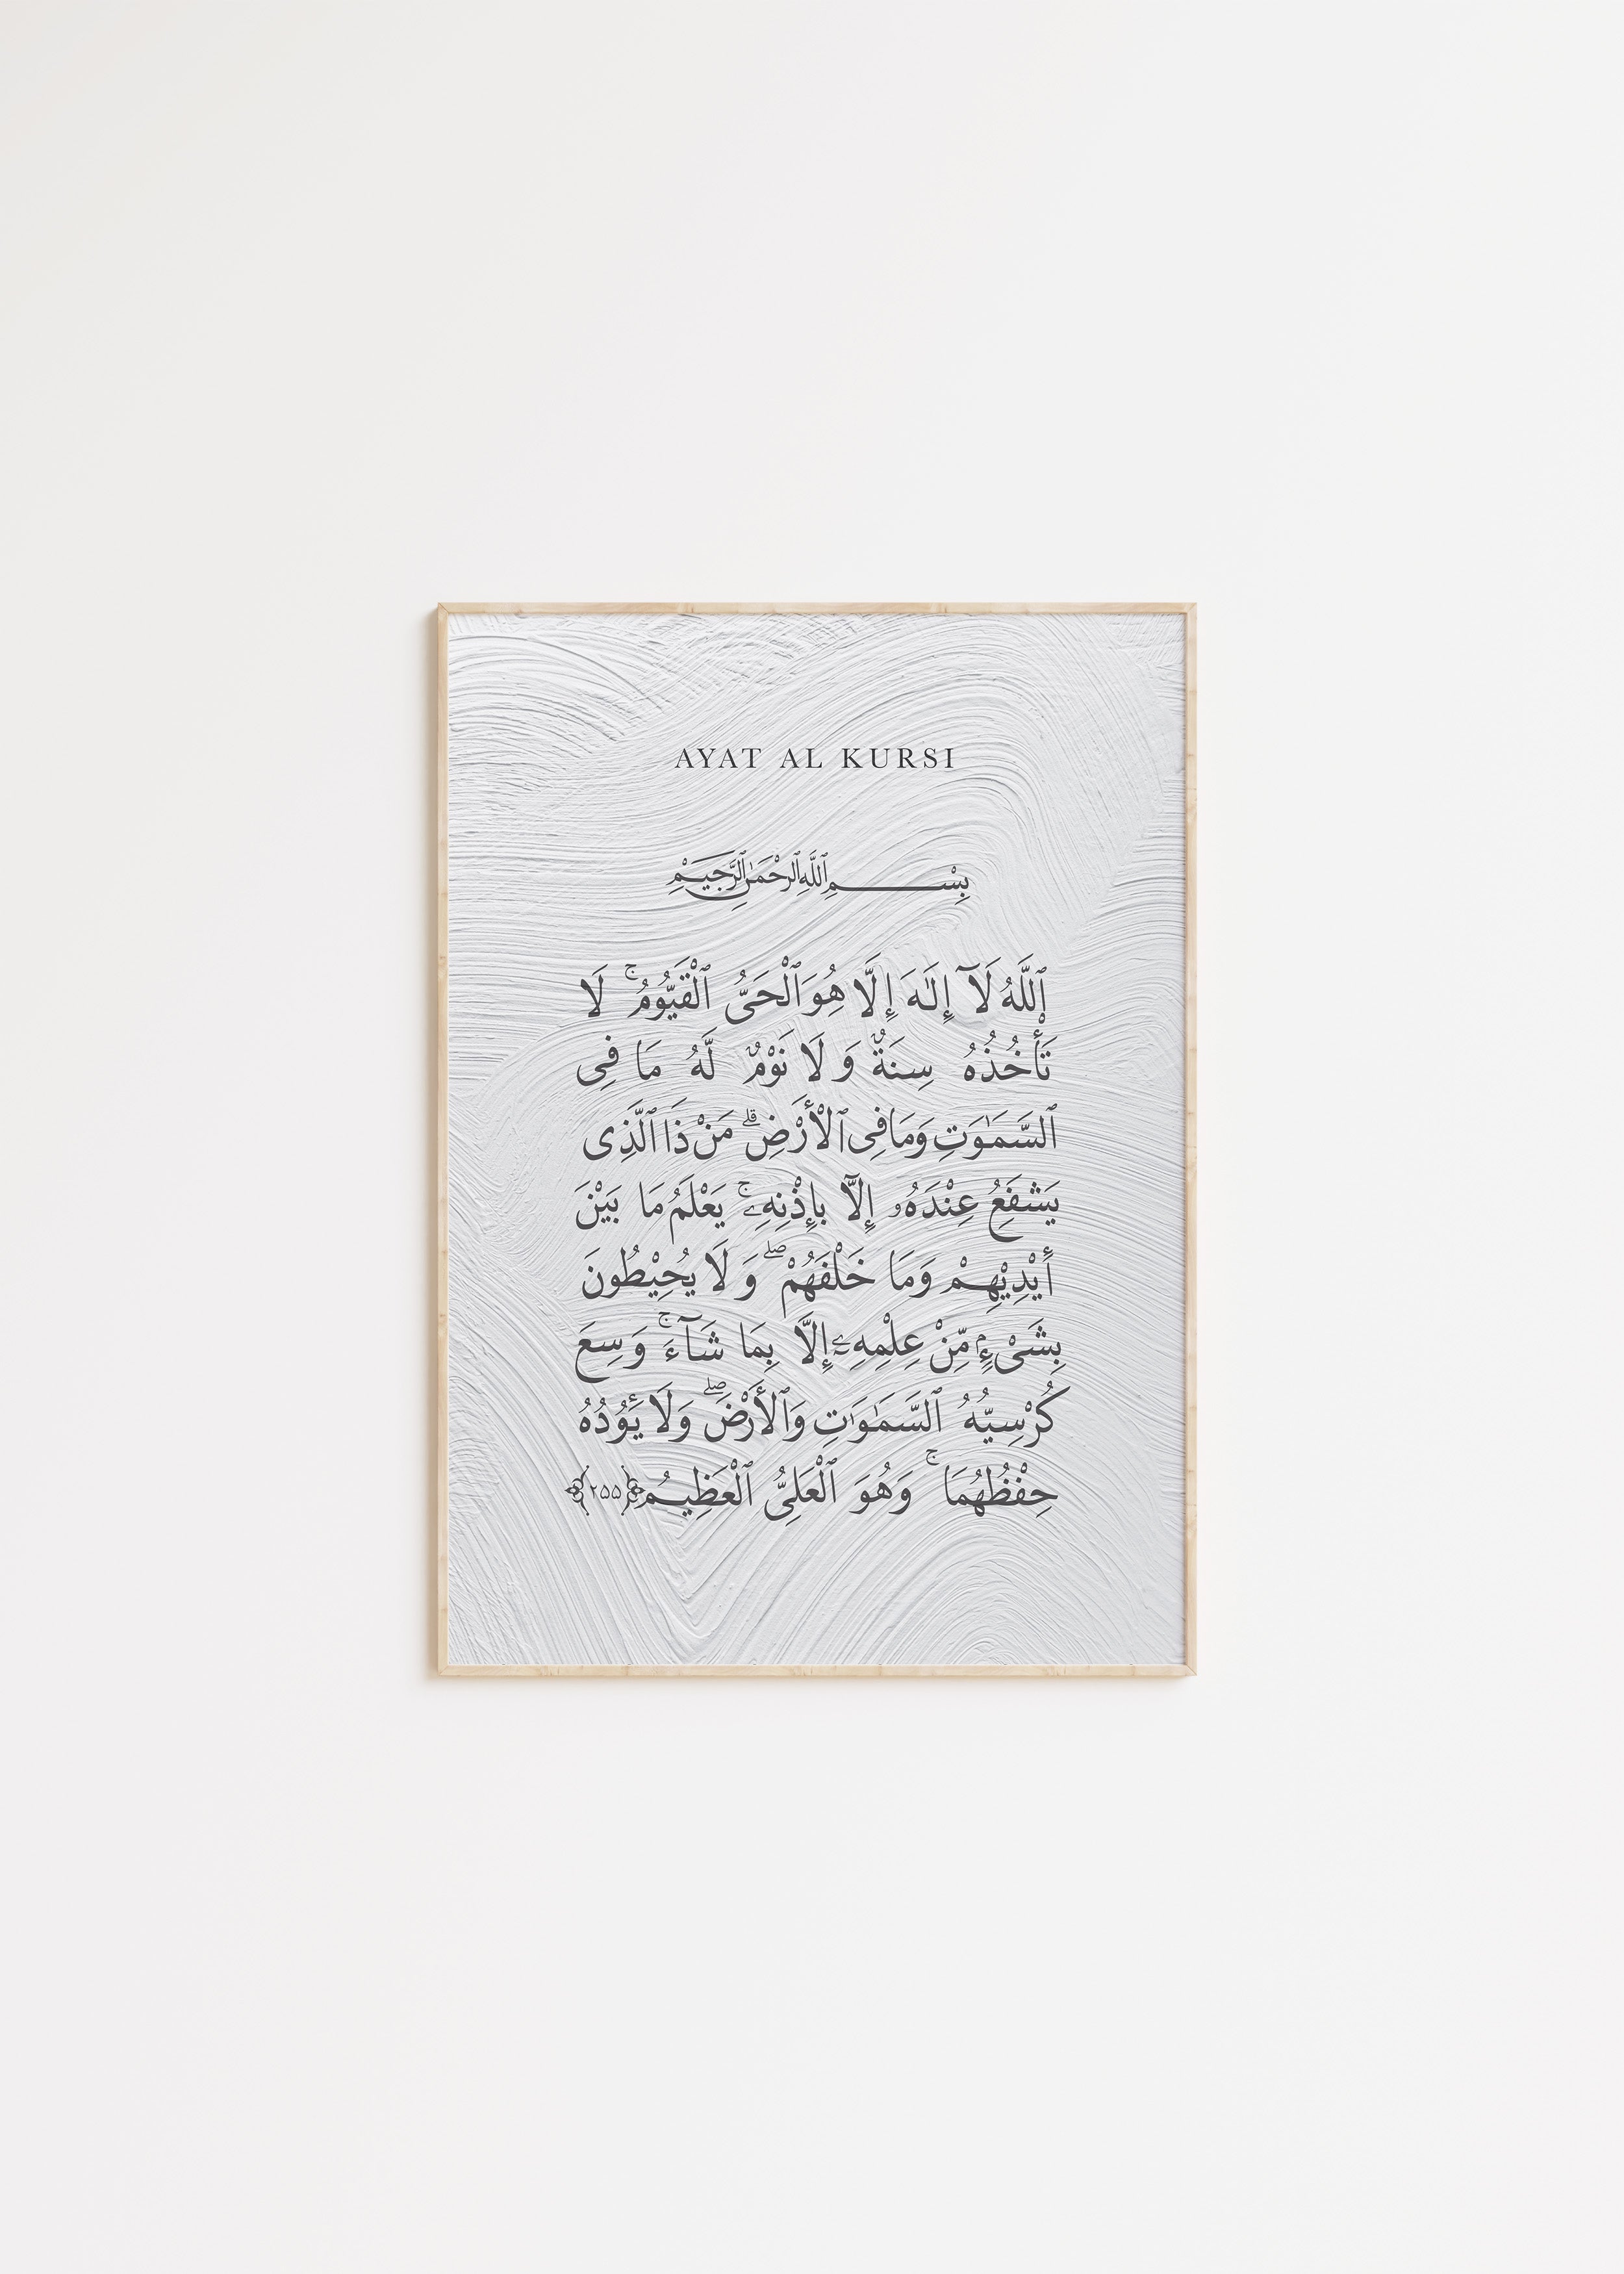 AYAT AL KURSI
بِسْمِ ٱللَّهِ ٱلرَّحْمَٰنِ ٱلرَّحِيمِ
ٱللَّهُ لَآ إِلَٰهَ إِلَّا هُوَ ٱلْحَىُّ ٱلْقَيُّومُ ۚ لَا
تَأْخُذُهُ سِنَةٌ وَ لَا نَوْمٌ لَّهُ مَا فِى
ٱلسَّمَٰوَٰتِ وَمَا فِى ٱلْأَرْضِ ۗ مَنْ ذَا ٱلَّذِى
يَشْفَعُ عِنْدَهُۥ إِلَّا بِإِذْنِهِۦ ۚ يَعْلَمُ مَا بَيْنَ
أَيْدِيْهِمْ وَمَا خَلْفَهُمْ ۖ وَ لَا يُحِيْطُونَ
بِشَىْءٍ مِّنْ عِلْمِهِۦٓ إِلَّا بِمَا شَآءَ ۚ وَسِعَ
كُرْسِيُّهُ ٱلسَّمَٰوَٰتِ وَٱلْأَرْضَ ۖ وَلَا يَـُٔوْدُهُ
حِفْظُهُمَا ۚ وَهُوَ ٱلْعَلِىُّ ٱلْعَظِيمُ ﴿٢٥٥﴾